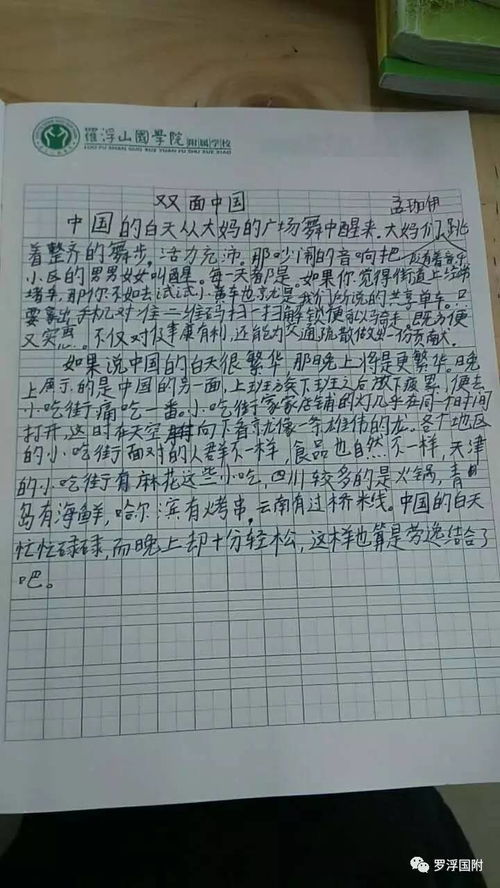 羅浮山國學院附属学校
LUO FU SHAN GUO XUE YUAN FU SHU XUE XIAO
双面中国
孟珈伊
中国的白天从大妈的广场舞中醒来。大妈们跳
着整齐的舞步。活力充沛。那吵闹的音响把
小区的男男女女叫醒。每一天都是。如果你觉得街道上经常
堵车，那你不如去试试小黄车也就是我们所说的共享单车。只
要拿出手机对准二维码扫一扫解锁便可以骑走。既方便
又实惠。不仅对健康有利，还能为交通疏散做出一份贡献。
如果说中国的白天很繁华，那晚上将是更繁华。晚
上展示的是中国的另一面，上班族下班之后放下疲累，便去
小吃街痛吃一番。小吃街家家店铺的灯几乎在同一时间
打开，这时在天空向下看就像一条雄伟的龙。各个地区
的小吃街面对的人群不一样，食品也自然不一样，天津
的小吃街有麻花这些小吃，四川较多的是火锅，青
岛有海鲜，哈尔滨有烤串，云南有过桥米线。中国的白天
忙忙碌碌，而晚上却十分轻松，这样也算是劳逸结合了
吧。
罗浮国附